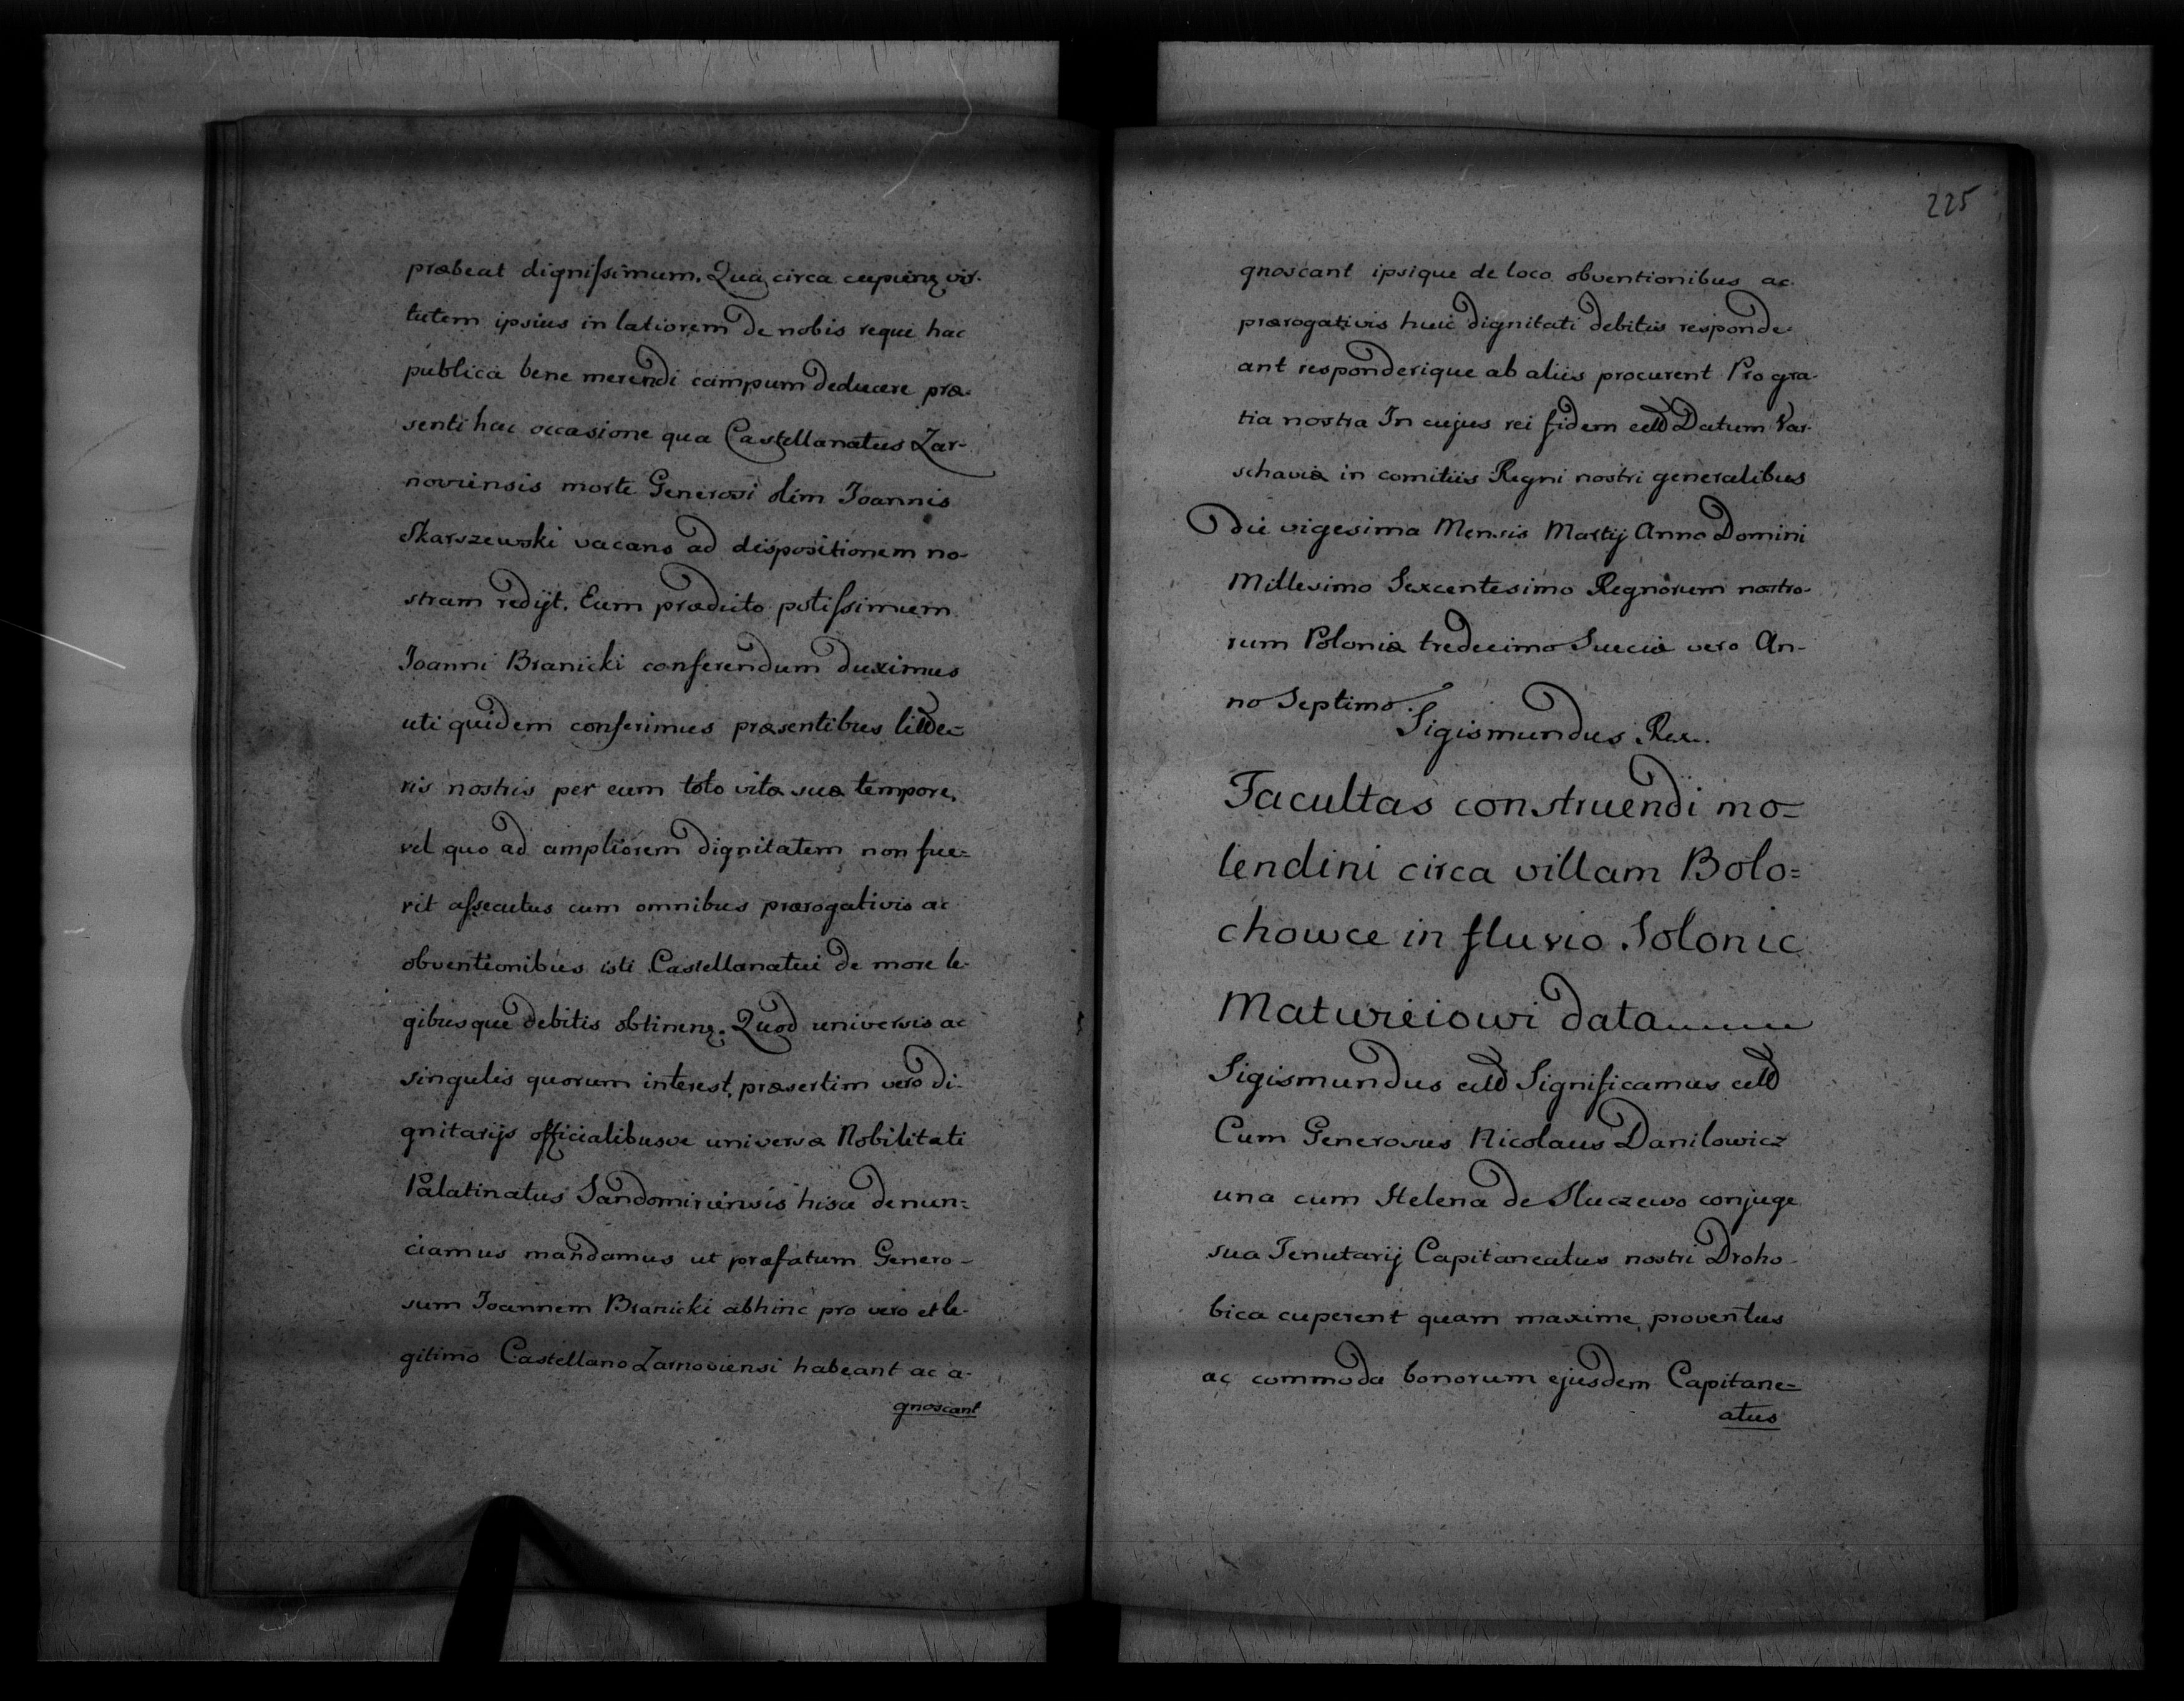 præbeat dignissimum. Qua circa cupieng vir-
tutem ipsius in latiorem de nobis reque hac
publica bene merendi campum deducere præ-
senti hac occasione qua Castellanatus Zar-
noviensis morte Generosi olim Joannis
Skarszewski vacans ad dispositionem no-
stram redijt. Eum prædicto potissimum
Joanni Branicki conferendum duximus
uti quidem conferimus præsentibus litte=
ris nostris per eum toto vitæ suæ tempore,
vel quo ad ampliorem dignitatem non fue=
rit assecutus cum omnibus prærogativis ac
obventionibus isti Castellanatui de more le-
gibusque debitis obtineng. Quod universis ac
singulis quorum interest, præsertim vero di-
gnitarijs officialibusve universæ Nobilitati
Palatinatus Sandomiriensis hisce denun=
ciamus mandamus ut præfatum Genero-
sum Joannem Branicki abhinc pro vero et le-
gitimo Castellano Zarnoviensi habeant ac a-
gnoscant
225
gnoscant ipsique de loco obventionibus ac
prærogativis huic dignitati debitis responde-
ant responderique ab aliis procurent Pro gra-
tia nostra In cujus rei fidem ettt Datum Var-
schaviæ in comitiis Regni nostri generalibus
die vigesima Mensis Martij Anno Domini
Millesimo Sexcentesimo Regnorum nostro-
rum Poloniæ tredecimo Sueciæ vero An-
no Septimo.
Sigismundus Rex.
Facultas construendi mo=
lendini circa villam Bolo=
chowce in fluvio Solonic
Matwieiowi data
Sigismundus ettt Significamus ettt
Cum Generosus Nicolaus Danilowicz
una cum Helena de Uluczewo conjuge
sua Tenutarij Capitaneatus nostri Droho-
bica cuperent quam maxime, proventus
ac commoda bonorum ejusdem Capitane=
atus